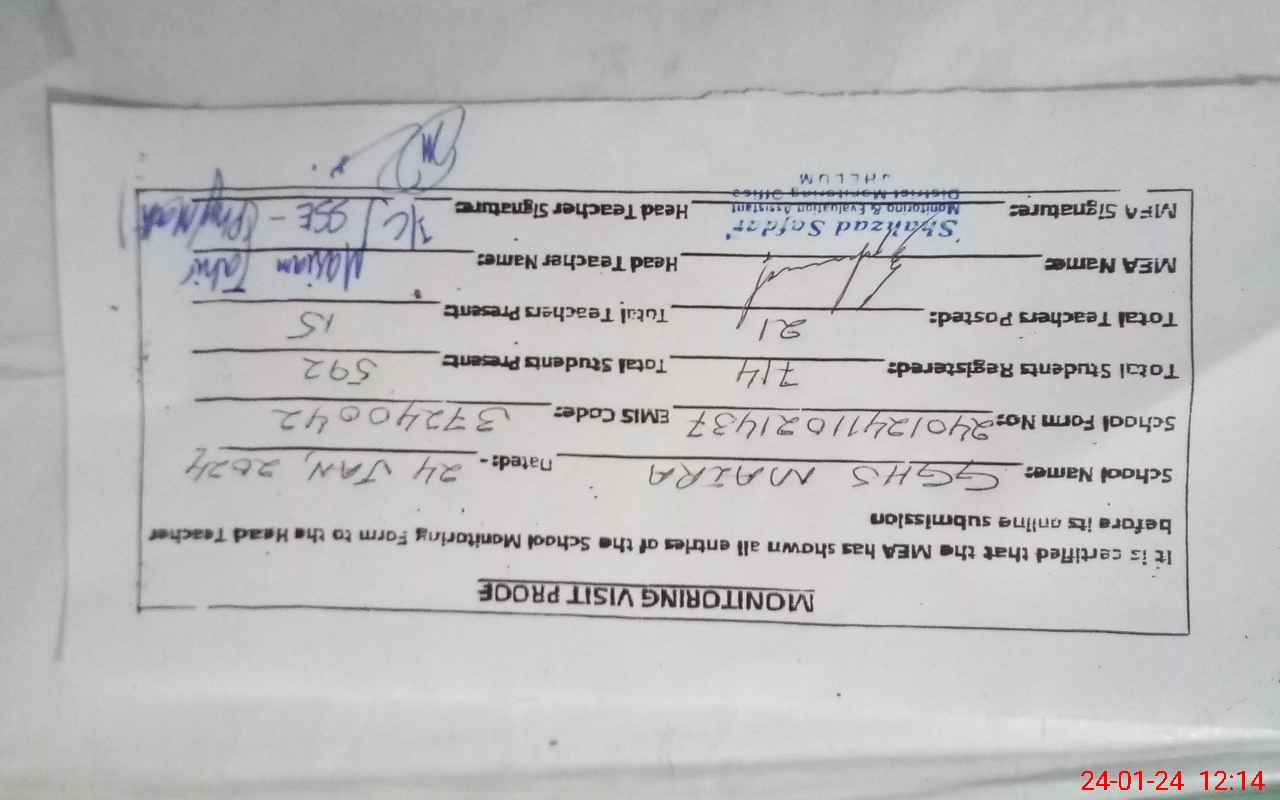 MONITORING VISIT PROOF
It is certified that the MEA has shown all entries of the School Monitoring Form to the Head Teacher
before its online submission
School Name: GGHS MAIRA Dated:- 24 JAN, 2024
School Form No: 240124111021437 EMIS Code: 37240042
Total Students Registered: 714 Total Students Present: 592
Total Teachers Posted: 21 Total Teachers Present: 15
MEA Name: Head Teacher Name: Mariam Tahir
Shahzad Safdar
MEA Signature: Monitoring & Evaluation Assistant Head Teacher Signature: I/C SSE - (Phy/Math)
District Monitoring Office
JHELUM
24-01-24 12:14